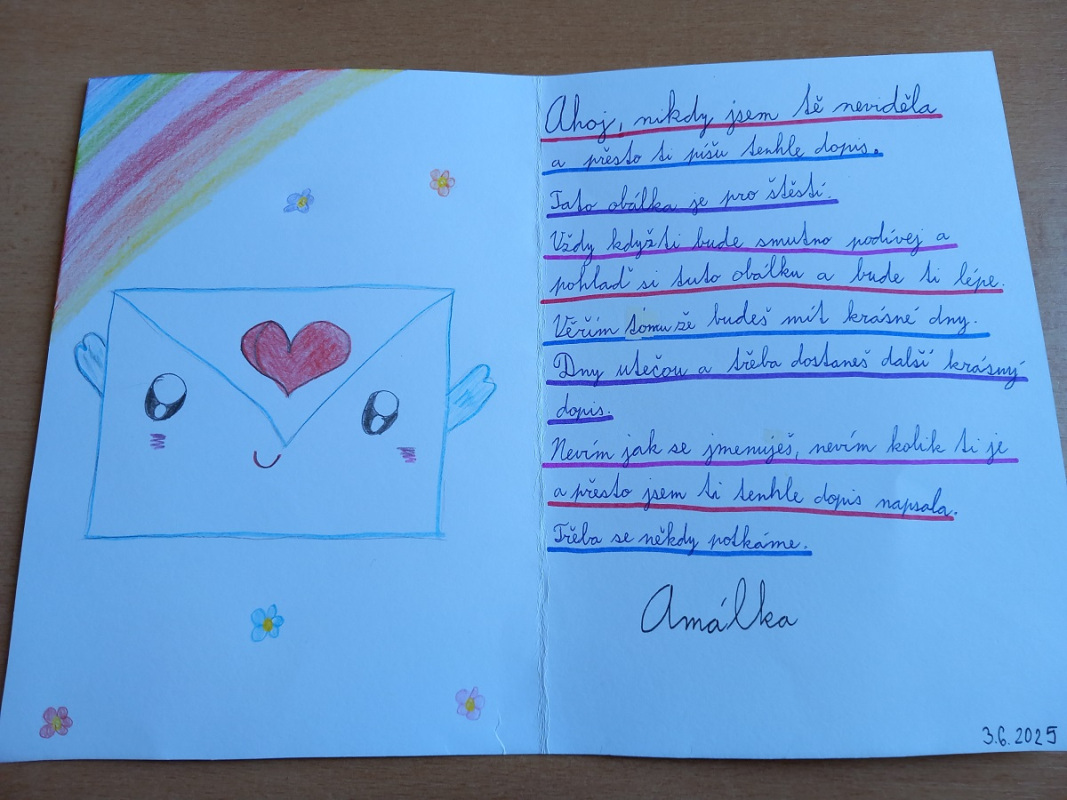 Ahoj, nikdy jsem tě neviděla
a přesto ti píšu tenhle dopis.
Tato obálka je pro štěstí.
Vždy když ti bude smutno podívej a
pohlaď si tuto obálku a bude ti lépe.
Věřím tomu že budeš mít krásné dny.
Dny utečou a třeba dostaneš další krásný
dopis.
Nevím jak se jmenuješ, nevím kolik ti je
a přesto jsem ti tenhle dopis napsala.
Třeba se někdy potkáme.
Amálka
3.6.2025